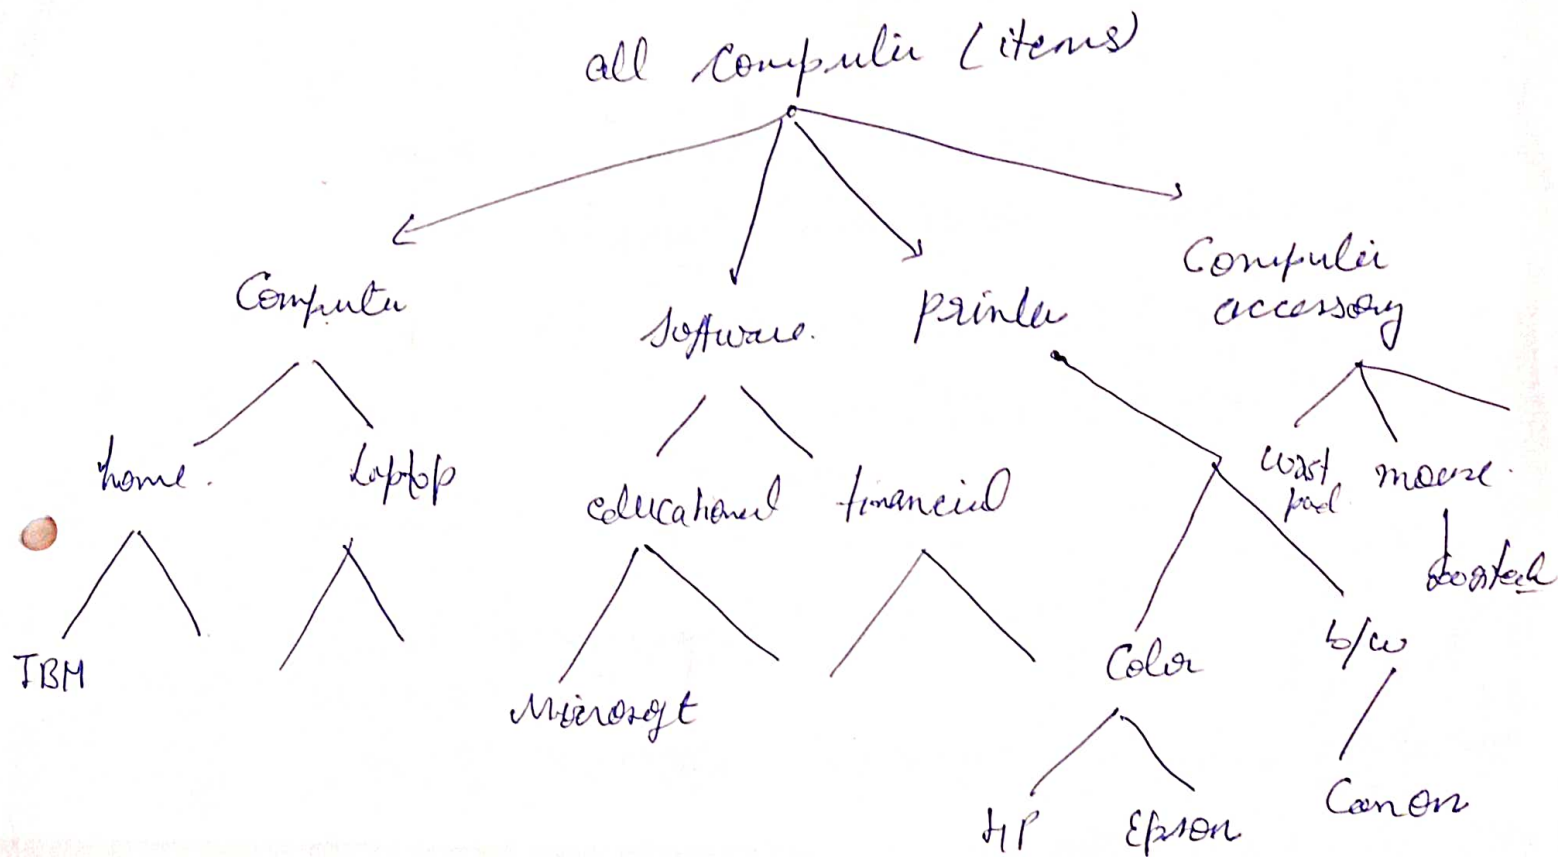 all Computer (items)
Computer
Software.
Printer
Computer
accessory
home.
Laptop
educational
financial
wrist
pad
mouse.
color
b/w
IBM
Microsoft
HP
Epson
Canon